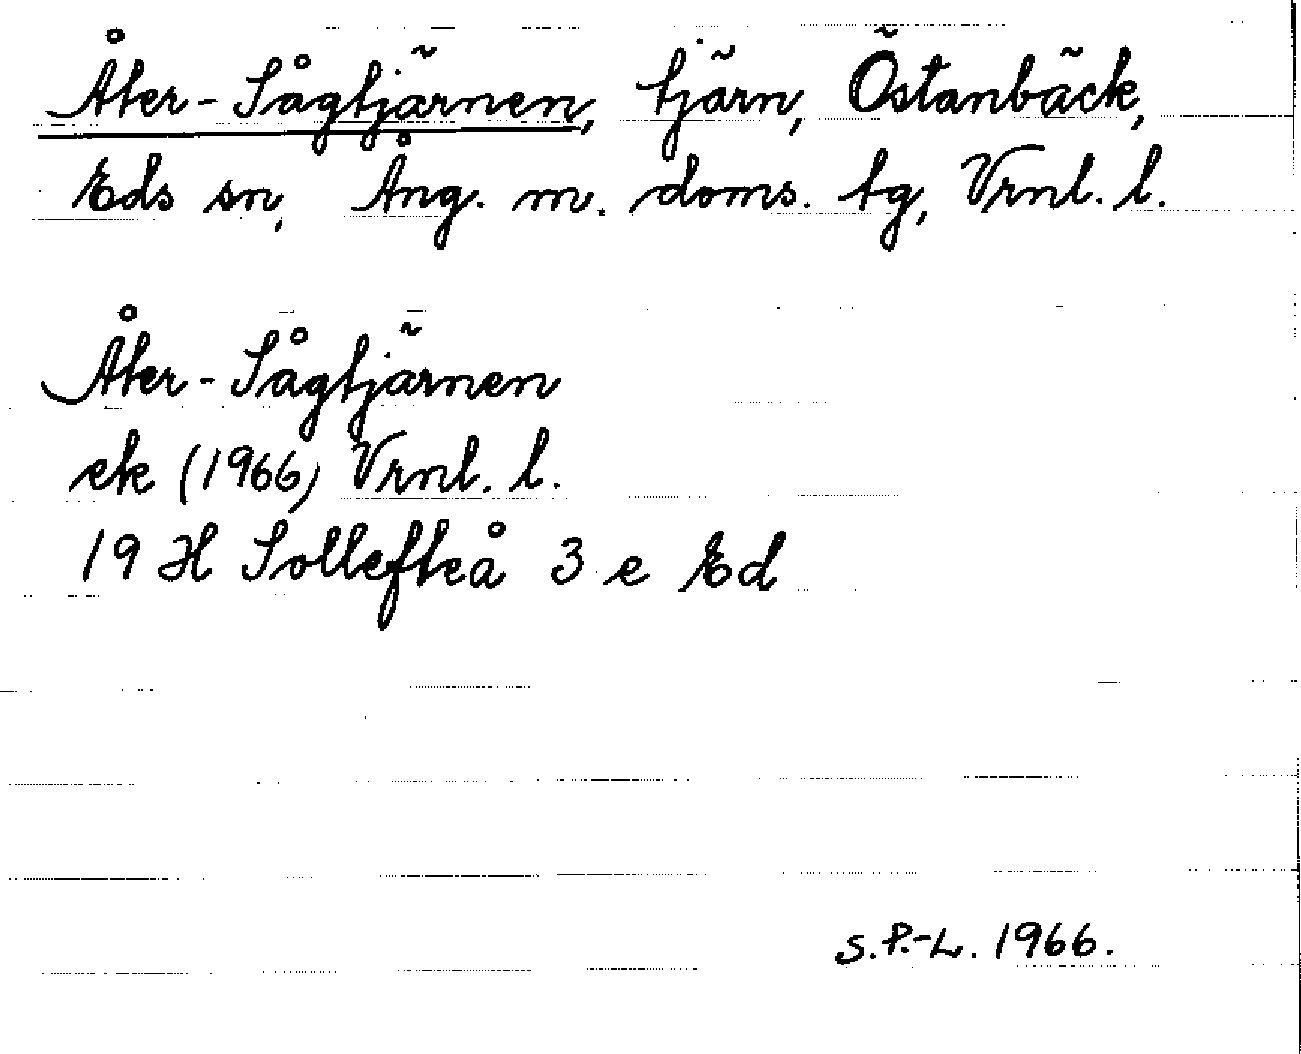 Åter-Sågtjärnen, tjärn, Östanbäck,
Eds sn, Ång. m. doms. tg, Vrnl. l.
Åter-Sågtjärnen
ek (1966) Vrnl. l.
19 H Sollefteå 3 e Ed
S.P.-L. 1966.